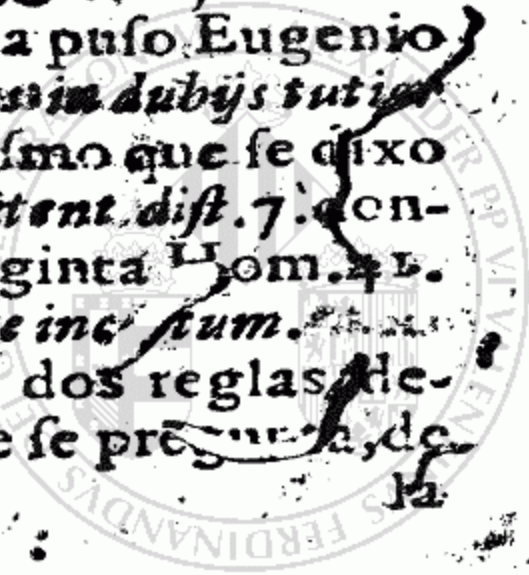 a puſo Eugenio
in dubijs tutior
ſmo que ſe dixo
diſt. 7. don-
ginta Hom. 41.
e
dos reglas, de-
e ſe pregunta, de
la